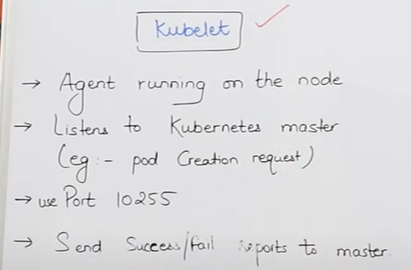 Kubelet
→ Agent running on the node
→ Listens to Kubernetes master
(eg:- pod Creation request)
→ use Port 10255
→ Send Success/Fail reports to master.